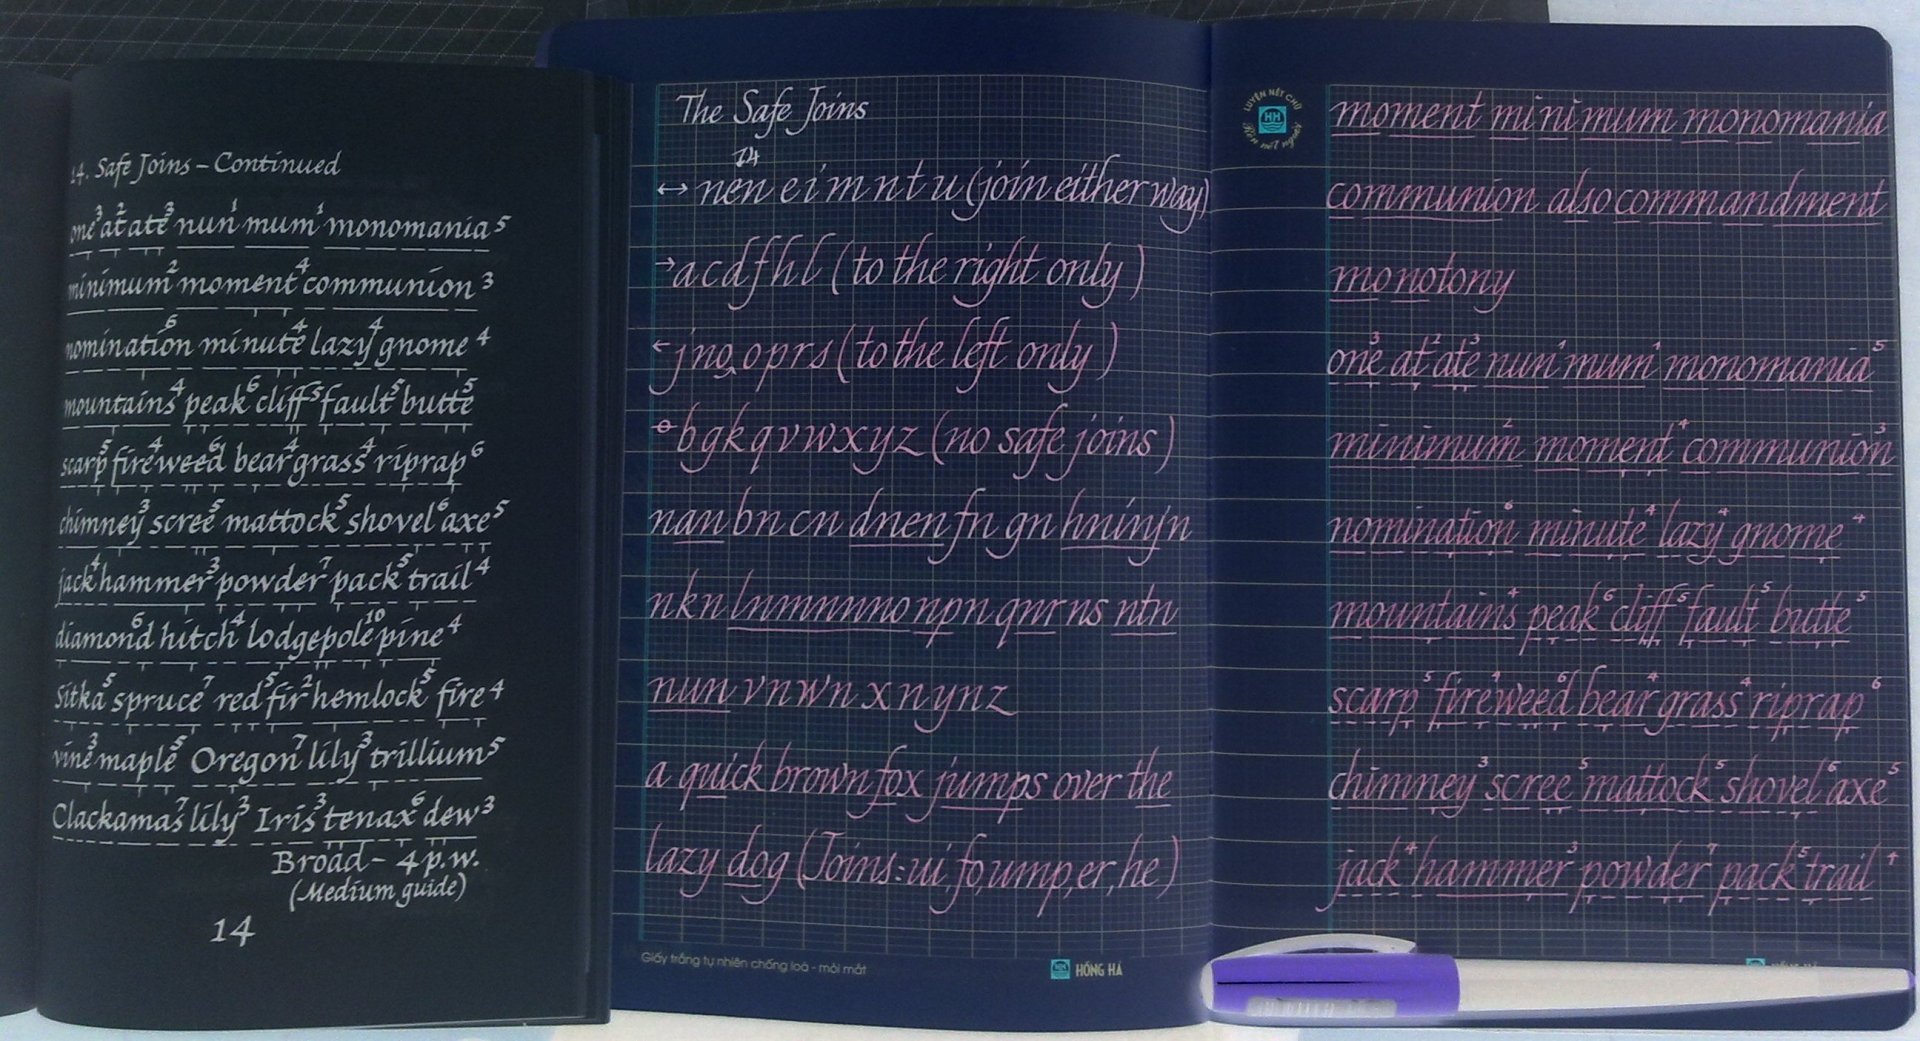 14. Safe Joins – Continued
one³ at² ate³ nun¹ mum¹ monomania⁵
minimum² moment⁴ communion³
nomination⁶ minute⁴ lazy⁴ gnome⁴
mountains⁴ peak⁶ cliff⁵ fault⁵ butte⁵
scarp⁵ fire⁴weed⁶ bear⁴grass⁴ riprap⁶
chimney³ scree⁵ mattock⁵ shovel⁶ axe⁵
jack⁴hammer³ powder⁷ pack⁵ trail⁴
diamond⁶ hitch⁴ lodgepole¹⁰ pine⁴
Sitka⁵ spruce⁷ red⁵ fir² hemlock⁵ fire⁴
vine³ maple⁵ Oregon⁷ lily³ trillium⁵
Clackamas⁷ lily³ Iris³ tenax⁶ dew³
Broad – 4 p.w.
(Medium guide)
14
The Safe Joins
14
↔ nen e i m n t u (join either way)
→ a c d f h l (to the right only)
← j no, o p r s (to the left only)
b g k q v w x y z (no safe joins)
nan bn cn dnen fn gn hninjn
nkn lnmnnno npn qnr ns ntn
nun vnwn xnynz
a quick brown fox jumps over the
lazy dog (Joins: ui, fo, ump, er, he)
Giấy trắng tự nhiên chống loá - mỏi mắt
HỒNG HÀ
LUYỆN NÉT CHỮ
Rèn nết người
HH
moment minimum monomania
communion also commandment
monotony
one³ at² ate³ nun¹ mum¹ monomania⁵
minimum² moment⁴ communion³
nomination⁶ minute⁴ lazy⁴ gnome⁴
mountains⁴ peak⁶ cliff⁵ fault⁵ butte⁵
scarp⁵ fire⁴weed⁶ bear⁴grass⁴ riprap⁶
chimney³ scree⁵ mattock⁵ shovel⁶ axe⁵
jack⁴ hammer³ powder⁷ pack⁵ trail⁴